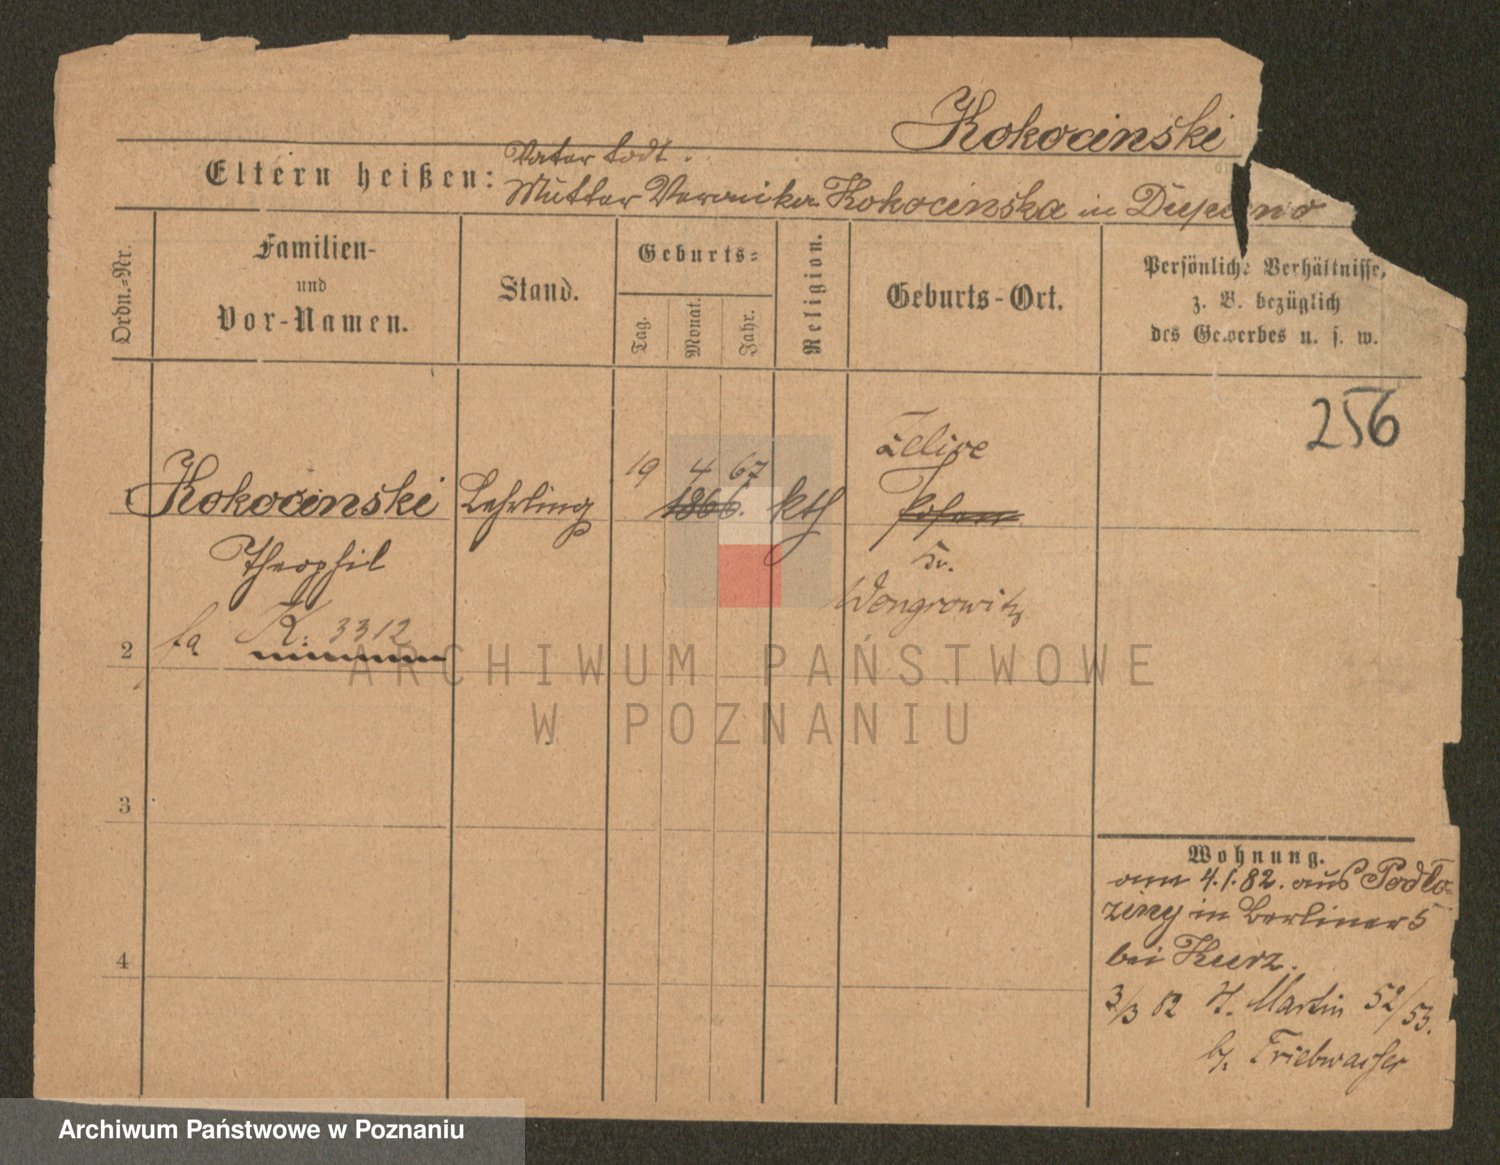 Kokocinski
Vater todt.
Eltern heißen:
Mutter Veronika Kokocinska in
Ordn.-Nr.
Familien-
und
Vor-Namen.
Stand.
Geburts-
Tag.
Monat.
Jahr.
Religion.
Geburts-Ort.
Persönliche Verhältnisse,
z. B. bezüglich
des Gewerbes u. s. w.
256
19 4 67
1 Kokocinski Lehrling 1866. kth Posen
Theophil
Kr.
Wongrowitz
K: 3312
2
3
4
Wohnung.
am 4.1.82. aus Podlo-
ziny in Berliner 5
bei Kurz.
3/3 82 St. Martin 52/53.
b/. Triebwasser
ARCHIWUM PAŃSTWOWE
W POZNANIU
Archiwum Państwowe w Poznaniu